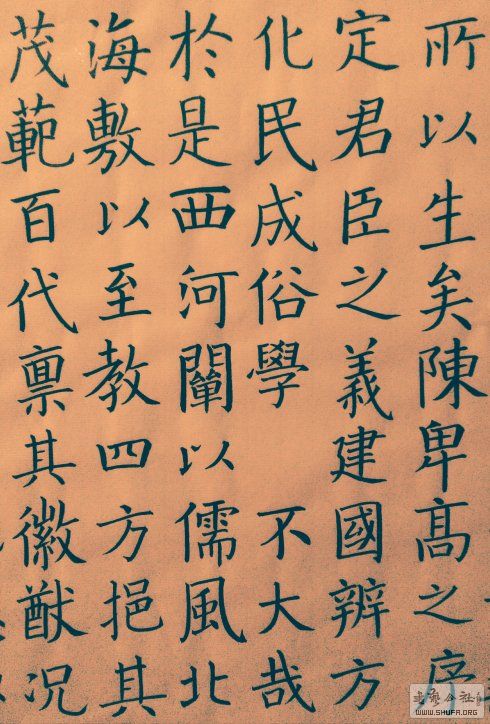 所以生矣陳卑高之序
定君臣之義建國辨方
化民成俗學 不大哉
於是西河闡以儒風北
海敷以至教四方挹其
茂範百代禀其徽猷况
WWW.SHUFA.ORG